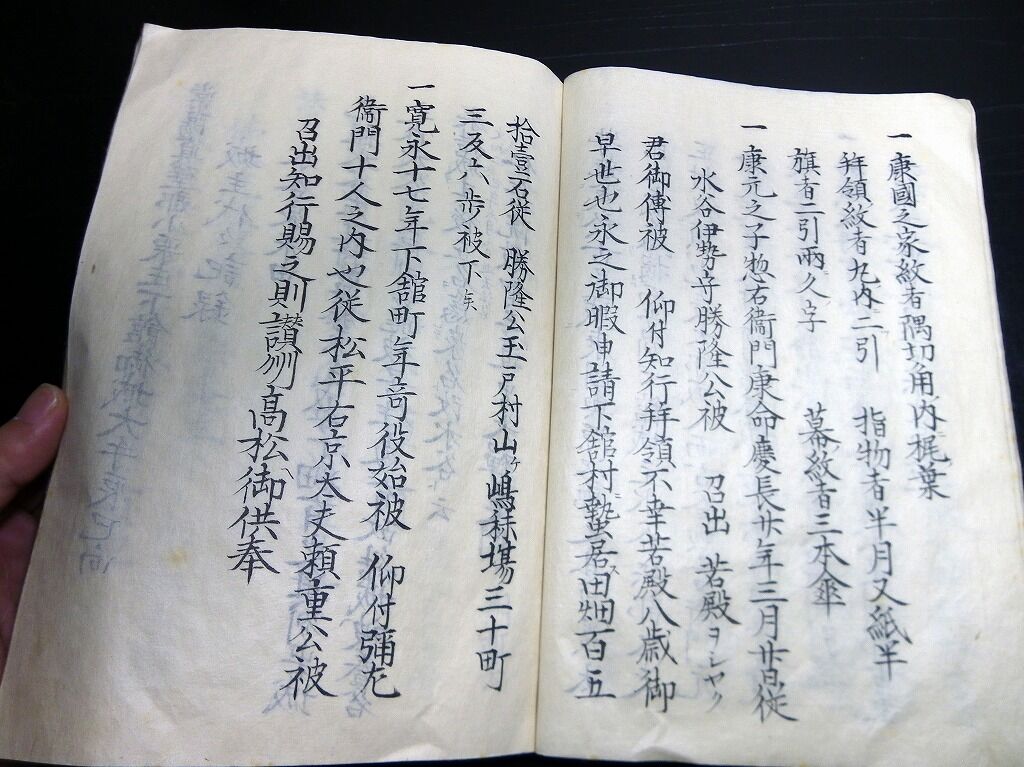 一 康國之家紋者隅切角內梶葉
拜領紋者丸內ニ二引 指物者半月又紙半
旗者二引兩久字 幕紋者三本傘
一 康元之子惣右衞門康命慶長廿年三月廿日從
水谷伊勢守勝隆公被 召出 若殿ヲシヤク
君御傳被 仰付知行拜領不幸若殿八歲御
早世也永之御暇申請下舘村ニ蟄居ス田畑百五
拾壹石從 勝隆公玉戶村山ヶ嶋秣場三十町
三反六步被下矣
一 寬永十七年下舘町年寄役始被 仰付彌左
衞門十人之內也從松平右京太夫賴重公被
召出知行賜之則讚州高松御供奉